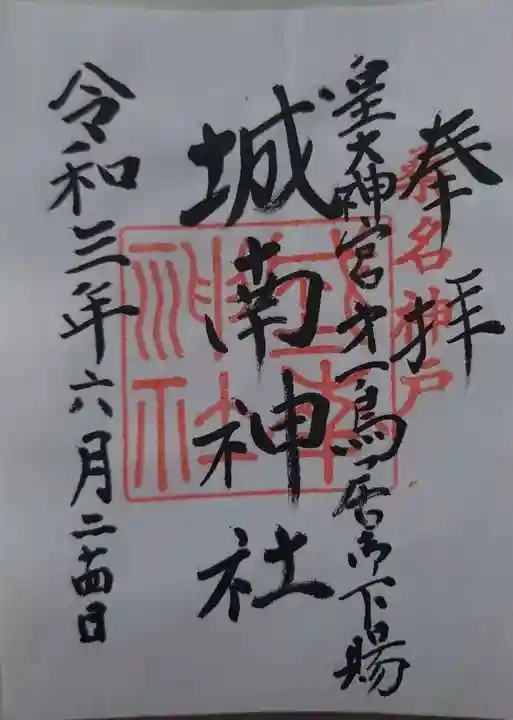 奉拝
桑名神戸
皇大神宮才一鳥居御下賜
城南神社
令和三年六月二十四日